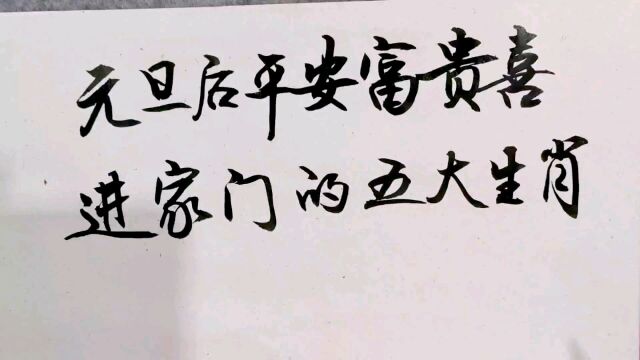 元旦后平安富贵喜
进家门的五大生肖